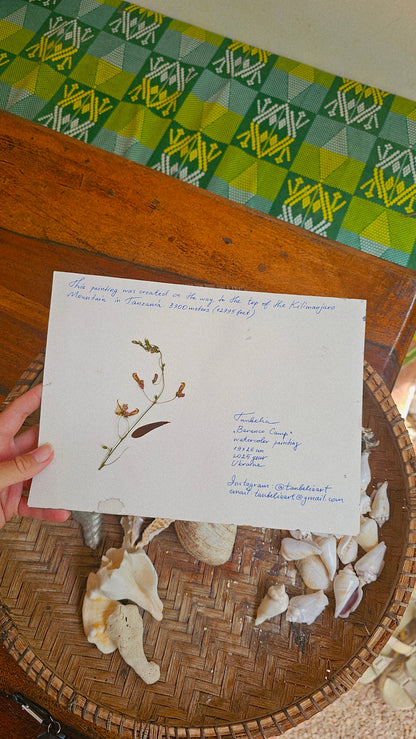 This painting was created on the way to the top of the Kilimanjaro
Mountain in Tanzania 3900 meters (12795 feet)
Tanbelia
"Baranco Camp"
watercolor painting
19x26 cm
2025 year
Ukraine
Instagram: @tanbeliaart
email: tanbeliaart@gmail.com